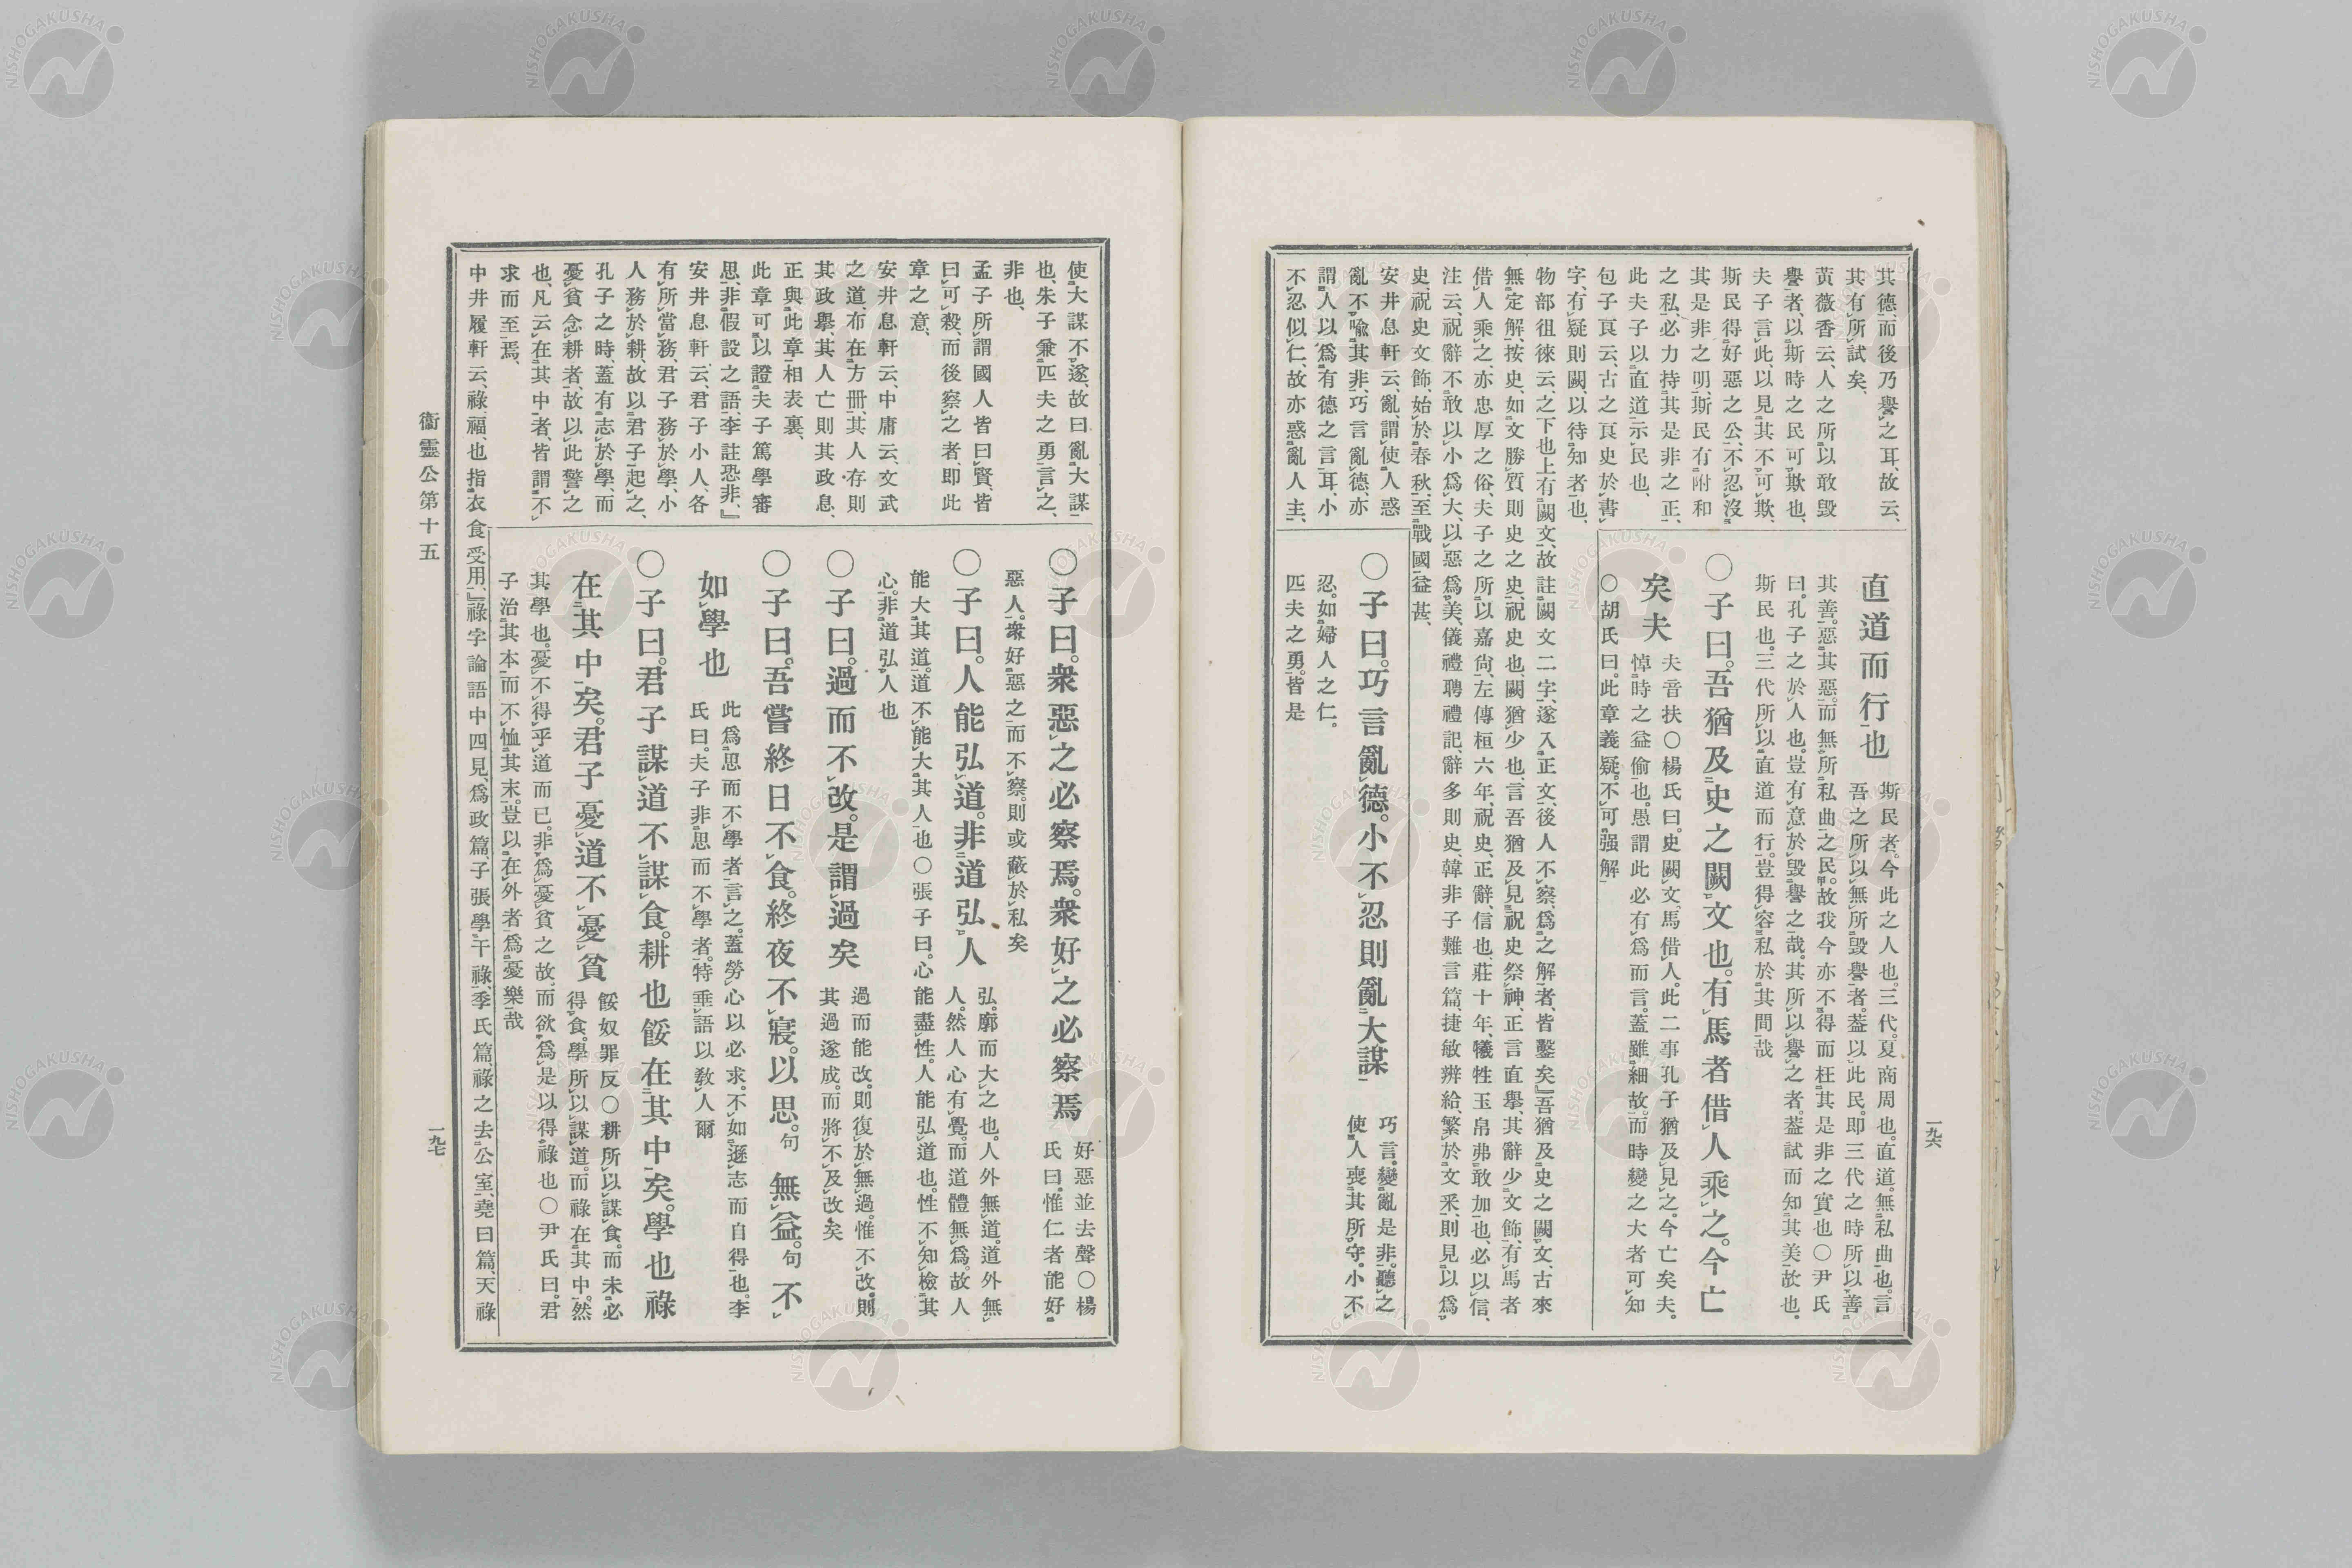 其德而後乃譽之耳、故云、
其有所試矣、
黃薇香云、人之所以敢毀
譽者、以斯時之民可欺也、
夫子言此、以見其不可欺、
斯民得好惡之公、不忍沒
其是非之明、斯民有附和
之私、必力持其是非之正、
此夫子以直道示民也、
包子良云、古之良史於書
字、有疑則闕、以待知者也、
物部徂徠云、之下也上有闕文、故註闕文二字、遂入正文、後人不察、爲之解者、皆鑿矣』吾猶及史之闕文、古來
無定解、按史、如文勝質則史之史、祝史也、闕猶少也、言吾猶及見祝史祭神、正言直擧、其辭少文飾、有馬者
借人乘之、亦忠厚之俗、夫子之所以嘉尙、左傳桓六年、祝史、正辭、信也、莊十年、犧牲玉帛弗敢加也、必以信、
注云、祝辭不敢以小爲大、以惡爲美、儀禮聘禮記、辭多則史、韓非子難言篇、捷敏辨給、繁於文釆、則見以爲
史、祝史文飾、始於春秋、至戰國益甚、
安井息軒云、亂、謂使人惑
亂不喩其非、巧言亂德、亦
謂人以爲有德之言耳、小
不忍似仁、故亦惑亂人主、
直道而行也
斯民者。今此之人也。三代。夏商周也。直道。無私曲也。言
吾之所以無所毀譽者。葢以此民。即三代之時所以善
其善。惡其惡。而無所私曲之民。故我今亦不得而枉其是非之實也○尹氏
曰。孔子之於人也。豈有意於毀譽之哉。其所以譽之者。葢試而知其美故也。
斯民也。三代所以直道而行。豈得容私於其間哉
○子曰。吾猶及史之闕文也。有馬者借人乘之。今亡
矣夫
夫音扶○楊氏曰。史闕文。馬借人。此二事孔子猶及見之。今亡矣夫。
悼時之益偷也。愚謂此必有爲而言。蓋雖細故。而時變之大者可知
○胡氏曰。此章義疑。不可强解
○子曰。巧言亂德。小不忍則亂大謀
巧言。變亂是非。聽之
使人喪其所守。小不
忍。如婦人之仁。
匹夫之勇。皆是
一九六
使大謀不遂、故曰亂大謀
也、朱子兼匹夫之勇言之、
非也、
孟子所謂國人皆曰賢、皆
曰可殺、而後察之者、即此
章之意、
安井息軒云、中庸云、文武
之道、布在方冊、其人存則
其政擧、其人亡則其政息、
正與此章相表裏、
此章可以證夫子篤學審
思、非假設之語、李註恐非、』
安井息軒云、君子小人、各
有所當務、君子務於學、小
人務於耕、故以君子起之、
孔子之時、蓋有志於學、而
憂貧念耕者、故以此警之
也、凡云在其中者、皆謂不
求而至焉、
中井履軒云、祿、福也、指衣食受用、』祿字論語中四見、爲政篇、子張學干祿、季氏篇、祿之去公室、堯曰篇、天祿
○子曰。衆惡之必察焉。衆好之必察焉
好惡並去聲○楊
氏曰。惟仁者能好
惡人。衆好惡之而不察。則或蔽於私矣
○子曰。人能弘道。非道弘人
弘。廓而大之也。人外無道。道外無
人。然人心有覺。而道體無爲。故人
能大其道。道不能大其人也○張子曰。心能盡性。人能弘道也。性不知檢其
心。非道弘人也
○子曰。過而不改。是謂過矣
過而能改。則復於無過。惟不改。則
其過遂成。而將不及改矣
○子曰。吾嘗終日不食。終夜不寢。以思。句無益。句不
如學也
此爲思而不學者言之。蓋勞心以必求。不如遜志而自得也。李
氏曰。夫子非思而不學者。特垂語以敎人爾
○子曰。君子謀道不謀食。耕也餒在其中矣。學也祿
在其中矣。君子憂道不憂貧
餒奴罪反○耕所以謀食。而未必
得食。學所以謀道。而祿在其中。然
其學也。憂不得乎道而已。非爲憂貧之故。而欲爲是以得祿也○尹氏曰。君
子治其本。而不恤其末。豈以在外者爲憂樂哉
衞靈公第十五
一九七